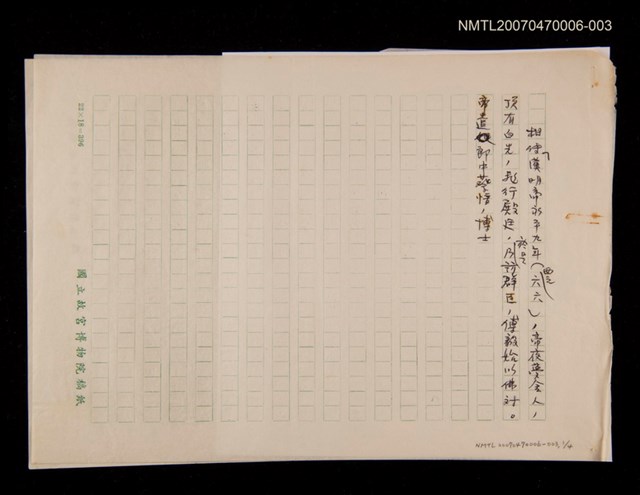 NMTL20070470006-003
相傳漢明帝永平九年（西元六六），帝夜夢金人，
頂有白光，飛行殿廷，於是乃訪群臣，傅毅始以佛對。
帝遣郎中蔡愔，博士
22×18=396
國立故宮博物院稿紙
NMTL 20070470006-003 1/4